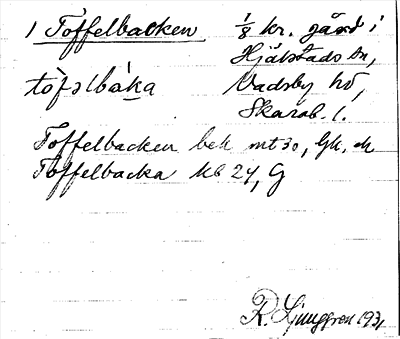 1 Toffelbacken 1/8 kr. gård i
Hjälstads sn,
tòfəlbáka Vadsby hd,
Skarab. l.
Toffelbacken bek mt 30, Gk. ek
Toffelbacka kb 24, G
R. Ljunggren 1931